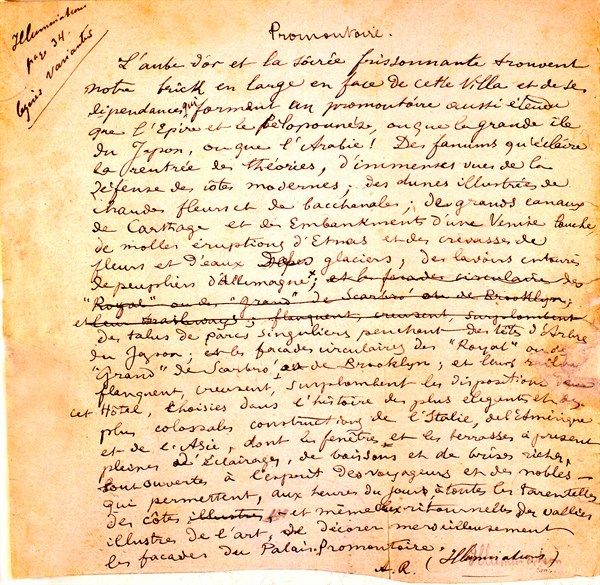 Illuminations
page 34.
légères variantes
Promontoire.
L'aube d'or et la soirée frissonnante trouvent
notre brick en large en face de cette Villa et de ses
dépendances, qui forment un promontoire aussi étendu
que l'Epire et le Péloponnèse, ou que la grande île
du Japon, ou que l'Arabie! Des fanums qu'éclaire
la rentrée des théories, d'immenses vues de la
défense des côtes modernes; des dunes illustrées de
chaudes fleurs et de bacchanales; de grands canaux
de Carthage et des Embankments d'une Venise louche,
de molles éruptions d'Etnas et des crevasses de
fleurs et d'eaux des glaciers, des lavoirs entourés
de peupliers d'Allemagne; et les façades circulaires des
"Royal" ou des "Grand" de Scarbro' ou de Brooklyn;
et leurs railways; flanquent, creusent, surplombent
des talus de parcs singuliers penchant des têtes d'Arbre
du Japon; et les façades circulaires des "Royal" ou des
"Grand" de Scarbro', ou de Brooklyn; et leurs railways
flanquent, creusent, surplombent les dispositions dans
cet Hôtel, choisies dans l'histoire des plus élégantes et des
plus colossales constructions de l'Italie, de l'Amérique
et de l'Asie, dont les fenêtres et les terrasses à présent
pleines d'éclairages, de boissons et de brises riches,
sont ouvertes à l'esprit des voyageurs et des nobles
qui permettent, aux heures du jour, à toutes les tarentelles
des côtes illustres et même aux ritournelles des vallées
illustres de l'art, de décorer merveilleusement
les façades du Palais-Promontoire.
A. R. (Illuminations)